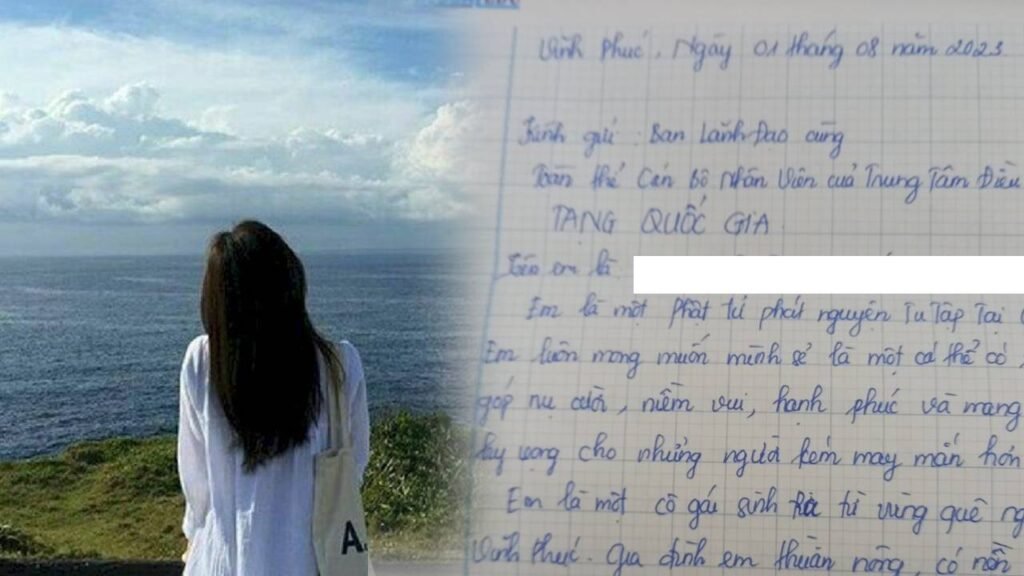 Vĩnh Phúc, Ngày 01 tháng 08 năm 2023
Kính gửi: Ban Lãnh Đạo cùng
Toàn thể Cán Bộ Nhân Viên của Trung Tâm Điều
TẠNG QUỐC GIA
Tên em là
Em là một Phật tử phát nguyện Tu Tập Tại
Em luôn mong muốn mình sẽ là một cá thể có
góp nụ cười, niềm vui, hạnh phúc và mang
hy vọng cho những người kém may mắn hơn
Em là một cô gái sinh ra từ vùng quê
Vĩnh Phúc. Gia đình em thuần nông, có nền
A.